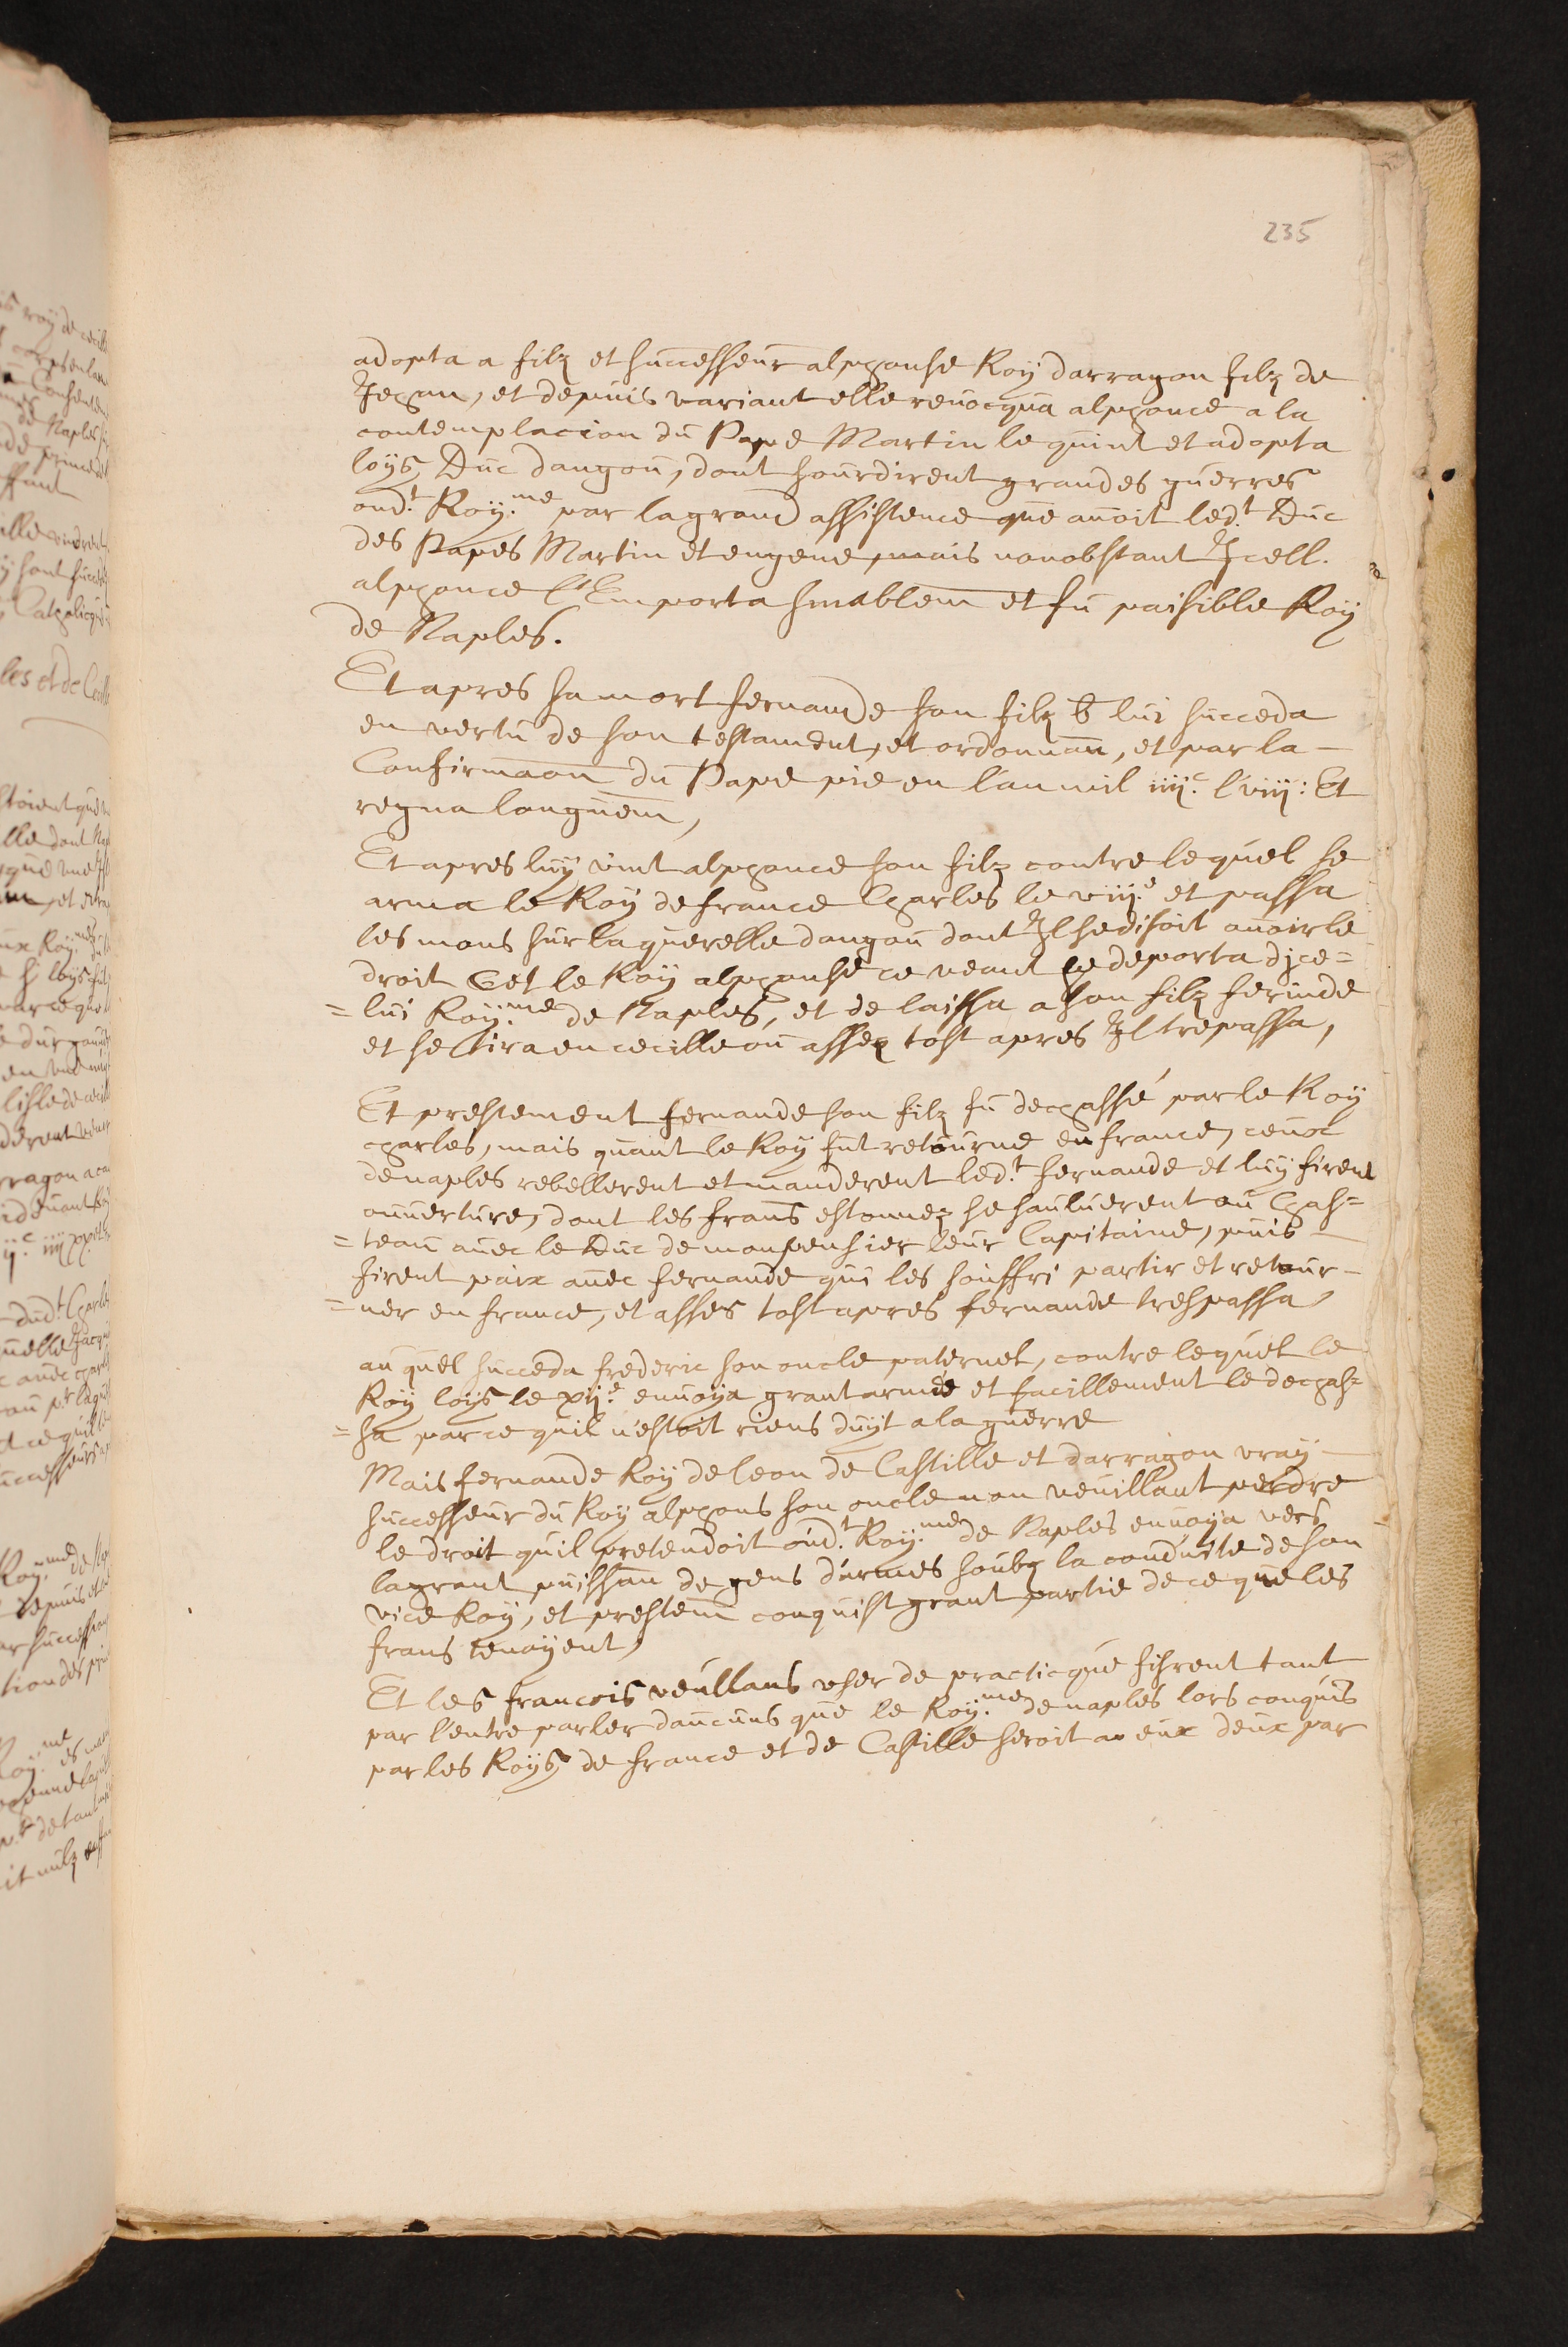 235
adopta a filz et successeur alphonse Roy darragon filz de
Jehan, et depuis variant elle revocqua alphonce a la
contemplacion du Pape Martin le quint et adopta
loys, Duc dangou, dont sourdirent grandes guerres
oud.t Roy.me par la grand assistence que avoit led.t Duc
des Papes Martin et eugene, mais nonobstant Jcell.
alphonce l'Emporta finablem et fu paisible Roy
de Naples.
Et apres sa mort fernande son filz b lui succeda
en vertu de son testament, et ordonnan, et par la -
Confirmaon du Pape pie en l'an mil iiij.c lviij: Et
regna longuem,
Et apres luy vint alphonce son filz contre lequel se
arma le Roy de france Charles le viij.e et passa
les mons sur la querelle dangou dont Jl se disoit avoir le
droit Cet le Roy alphonse ce veant se deporta djce=
=lui Roy.me de Naples, et de laissa a son filz ferinde
et se tira en cecille ou assez tost apres Jl trepassa,
Et prestement fernande son filz fu dechassé par le Roy
charles, mais quant le Roy fut retourne en france, ceux
de naples rebellerent et manderent led.t fernande et luy firent
ouverture, dont les frans estonnez se sauluerent au Chas=
=teau avec le Duc de monpensier leur Capitaine, puis -
firent paix avec fernande qui les souffri partir et retour-
=ner en france, et asses tost apres fernande trespassa,
au quel succeda frederic son oncle paternel, contre lequel le
Roy loys le xij.e envoya grant armée et facillement le dechas=
=sa parce quil n'estoit riens duyt a la guerre
Mais fernande Roy de leon de Castille et darragon vray -
successeur du Roy alphons son oncle non veuillant perdre
le droit quil pretendoit oud.t Roy.me de Naples envoya vers
la grant puissan de gens d'armes soubz la conduite de son
vice Roy, et prestem conquist grant partie de ce que les
frans tenoyent,
Et les francois veullans user de practicque fisrent tant
par l'entre parler daucuns que le Roy.me de naples lors conquis
par les Roys de france et de Castille seroit a eux deux par